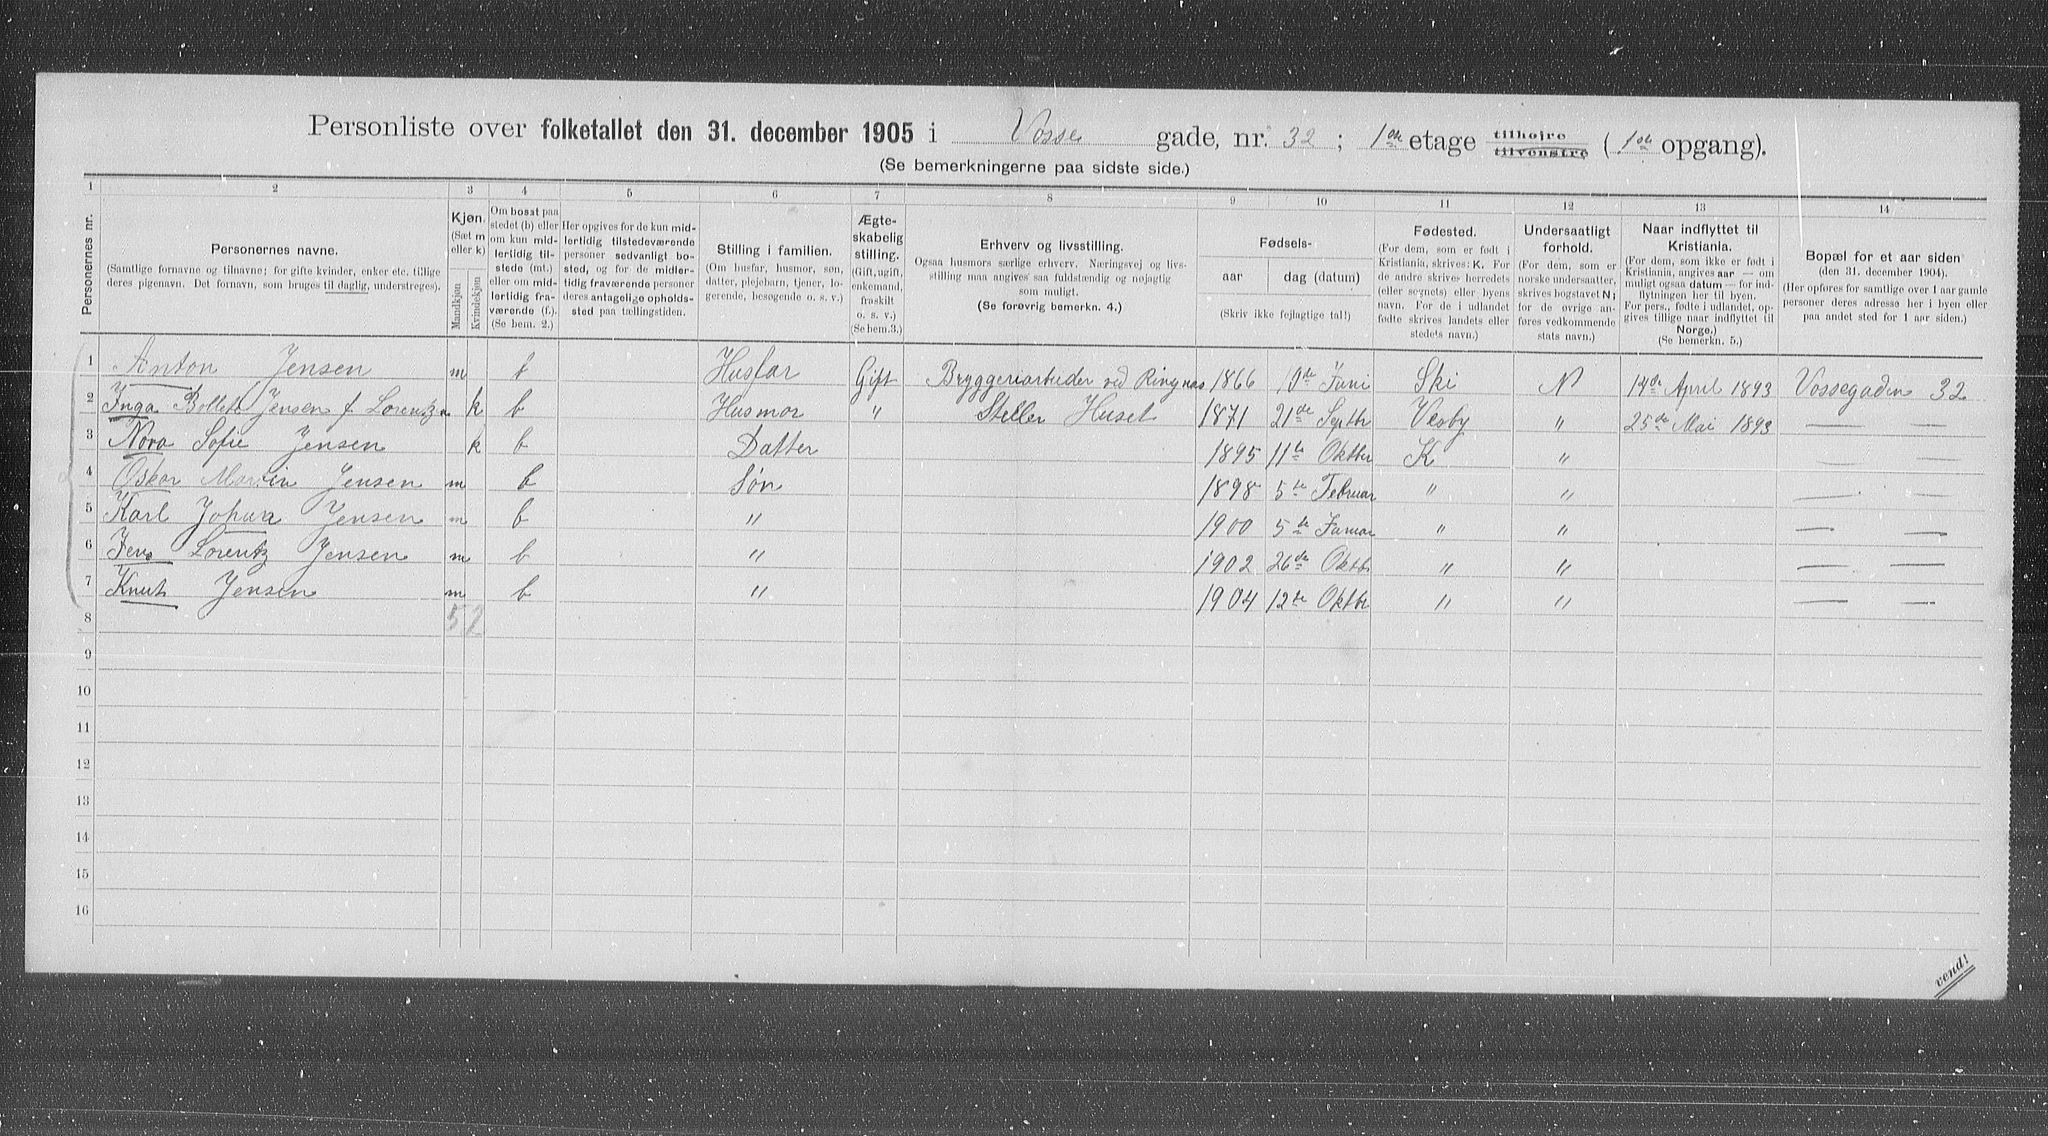 Personliste over folketallet den 31. december 1905 i Vosse gade, nr. 32 ; 1ste etage tilhøjre tilvenstre ( 1ste opgang).
(Se bemerkningerne paa sidste side.)
1 2 3 4 5 6 7 8 9 10 11 12 13 14
Personernes nr.
Personernes navne.
(Samtlige fornavne og tilnavne; for gifte kvinder, enker etc. tillige
deres pigenavn. Det fornavn, som bruges til daglig, understreges).
Kjøn.
(Sæt m
eller k)
Mandkjøn
Kvindekjøn
Om bosat paa
stedet (b) eller
om kun mid-
lertidig til-
stede (mt.)
eller om mid-
lertidig fra-
værende (f.).
(Se bem. 2.)
Her opgives for de kun mid-
lertidig tilstedeværende
personer sedvanligt bo-
sted, og for de midler-
tidig fraværende personer
deres antagelige opholds-
sted paa tællingstiden.
Stilling i familien.
(Om husfar, husmor, søn,
datter, plejebarn, tjener, lo-
gerende, besøgende o. s. v.)
Ægte-
skabelig
stilling.
(Gift, ugift,
enkemand,
fraskilt
o. s. v.)
(Se bem.3.)
Erhverv og livsstilling.
Ogsaa husmors særlige erhverv. Næringsvej og livs-
stilling maa angives saa fuldstændig og nøjagtig
som muligt.
(Se forøvrig bemerkn. 4.)
Fødsels-
aar dag (datum)
(Skriv ikke fejlagtige tal!)
Fødested.
(For dem, som er født i
Kristiania, skrives: K. For
de andre skrives herredets
(eller sognets) eller byens
navn. For de i udlandet
fødte skrives landets eller
stedets navn.)
Undersaatligt
forhold.
(For dem, som er
norske undersaatter,
skrives bogstavet N;
for de øvrige an-
føres vedkommende
stats navn.)
Naar indflyttet til
Kristiania.
(For dem, som ikke er født i
Kristiania, angives aar — om
muligt ogsaa datum — for ind-
flytningen her til byen.
For pers., fødte i udlandet, op-
gives tillige naar indflyttet til
Norge.)
(Se bemerkn. 5.)
Bopæl for et aar siden
(den 31. december 1904).
(Her opføres for samtlige over 1 aar gamle
personer deres adresse her i byen eller
paa andet sted for 1 aar siden.)
1 Anton Jensen m b Husfar Gift Bryggeriarbeider ved Ringnes 1866 Juni Ski N April 1893 Vossegaden 32
2 Inga Jensen f. Lorentzen k b Husmor " Steller Huset 1871 21de Septbr Vesby " 25de Mai 1893 — —
3 Nora Sofie Jensen k b Datter 1895 11te Oktbr K " — —
4 Oskar Martin Jensen m b Søn 1898 5te Februar " " — —
5 Karl Johan Jensen m b " 1900 5te Januar " " — —
6 Jens Lorentz Jensen m b " 1902 26de Oktbr " " — —
7 Knut Jensen m b " 1904 12te Oktbr " " — —
8 5 2
9
10
11
12
13
14
15
16
vend!